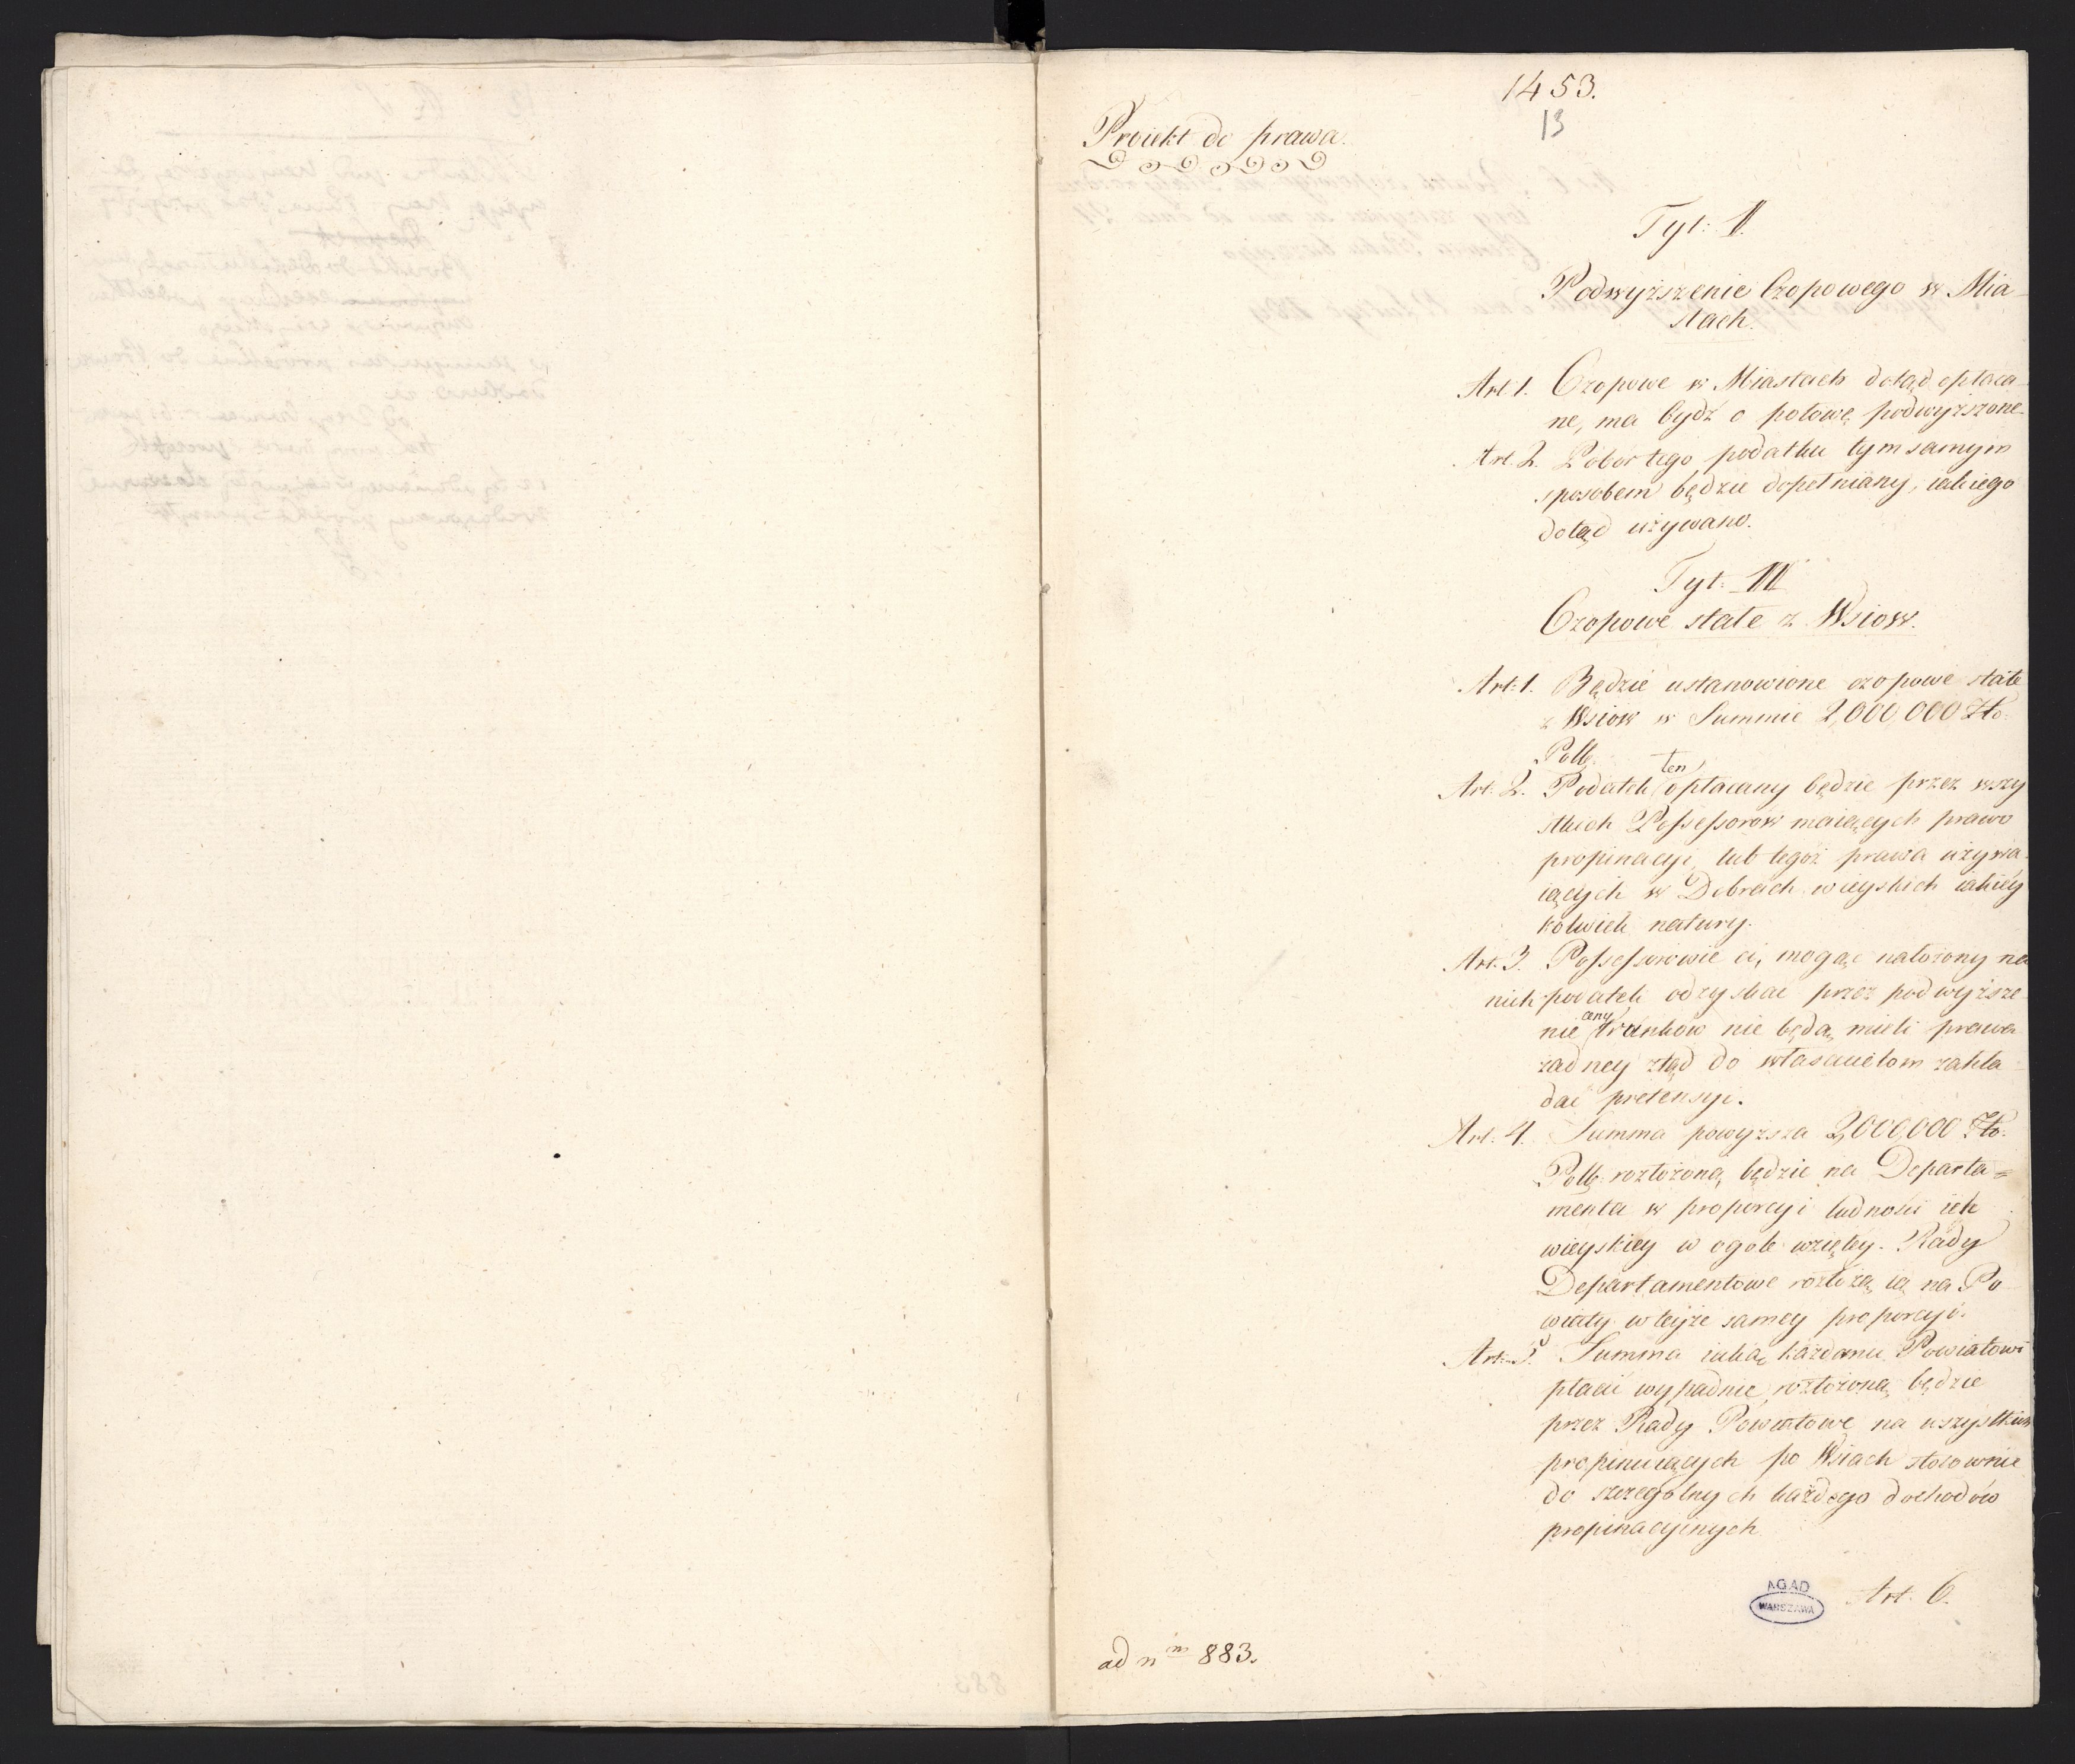 1453.
13
Proiekt do prawa.
Tyt: II.
Podwyższenie Czopowego w Mia-
stach.
Art 1. Czopowe w Miastach dotąd opłaca-
ne, ma bydź o połowę podwyższone
Art. 2. Pobor tego podatku tym samym
sposobem będzie dopełniany, iakiego
dotąd używano.
Tyt: III
Czopowe stałe z Wsiow.
Art: 1. Będzie ustanowione czopowe stałe
z Wsiow w Summie 2,000,000 Zło:
Pollę.
Art. 2. Podatek ten opłacany będzie przez wszy
stkich Possessorow maiących prawo
propinacyi, lub tegoż prawa używa-
iących w Dobrach wieyskich iakiey
kolwiek natury.
Art. 3. Possessorowie ci, mogąc nałożony na
nich podatek odzyskać przez podwyższe-
nie ceny trunków nie będą mieli prawa
żadney ztąd do włascicielom zakła-
dać pretensyi.
Art. 4. Summa powyższa 2,000,000 Zło:
Pollę: rozłożoną będzie na Departa=
menta w proporcyi ludności ich
wieyskiey w ogole wziętey. Rady
Departamentowe rozłożą ią na Po-
wiaty w teyże samey proporcyi.
Art. 5. Summa iaką każdemu Powiatowi
płacić wypadnie, rozłożoną będzie
przez Rady Powiatowe na wszystkich
propinuiących po Wsiach stosownie
do szczegolnych każdego dochodów
propinacyinych
AGAD
WARSZAWA
Art. 6.
ad n m 883.